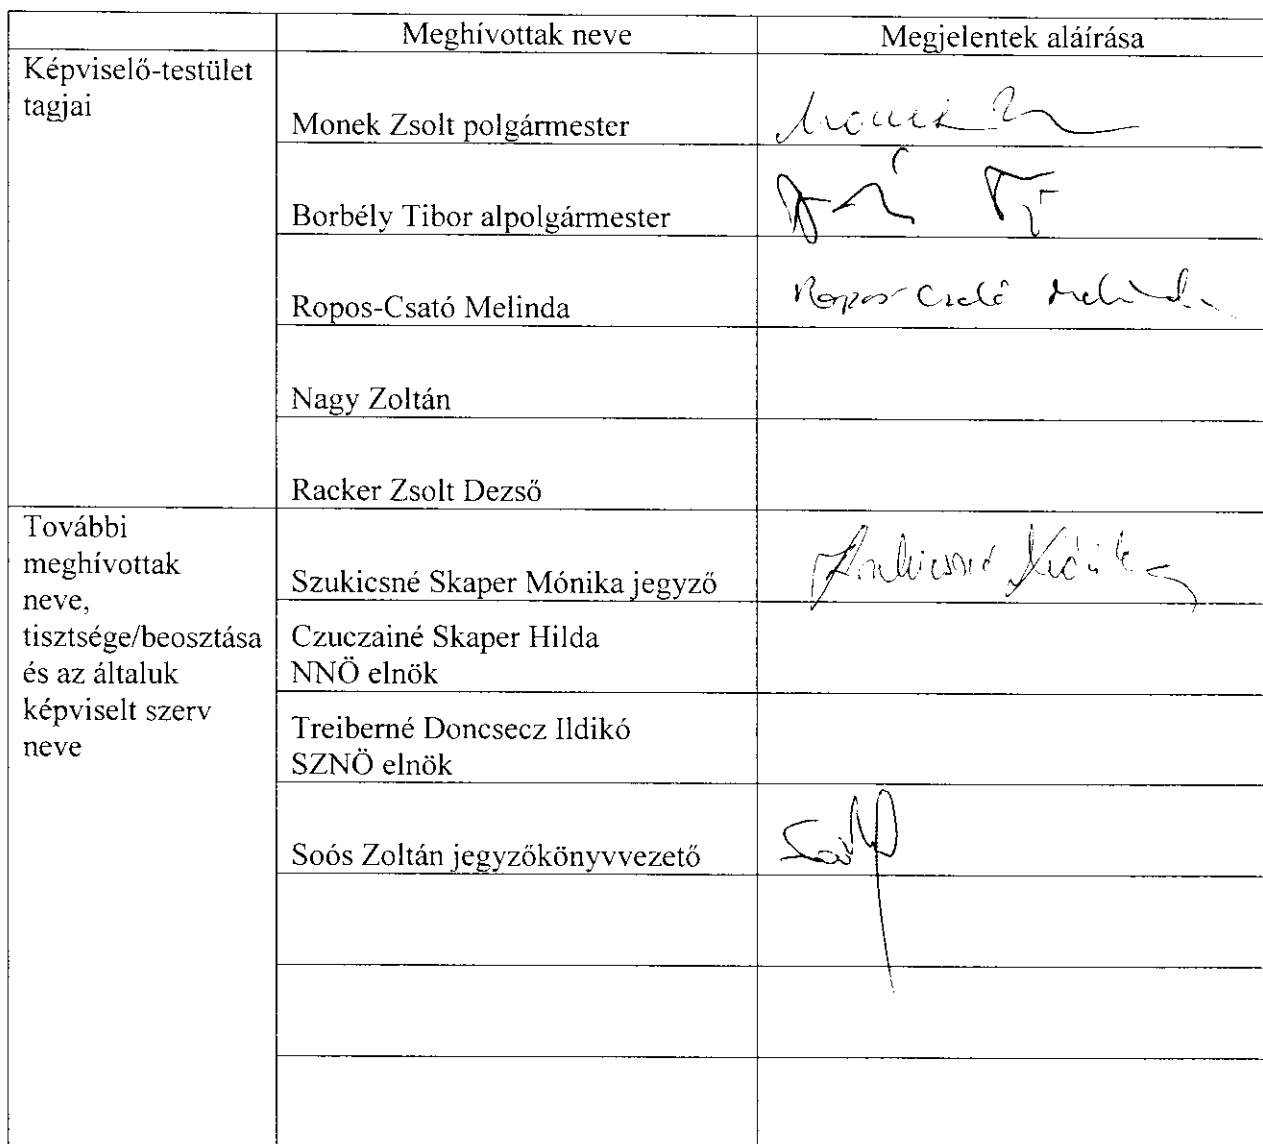 Meghívottak neve
Megjelentek aláírása
Képviselő-testület
tagjai
Monek Zsolt polgármester
Monek Zs
Borbély Tibor alpolgármester
Ropos-Csató Melinda
Ropos-Csató Melinda
Nagy Zoltán
Racker Zsolt Dezső
További
meghívottak
neve,
tisztsége/beosztása
és az általuk
képviselt szerv
neve
Szukicsné Skaper Mónika jegyző
Szukicsné Mónika
Czuczainé Skaper Hilda
NNÖ elnök
Treiberné Doncsecz Ildikó
SZNÖ elnök
Soós Zoltán jegyzőkönyvvezető